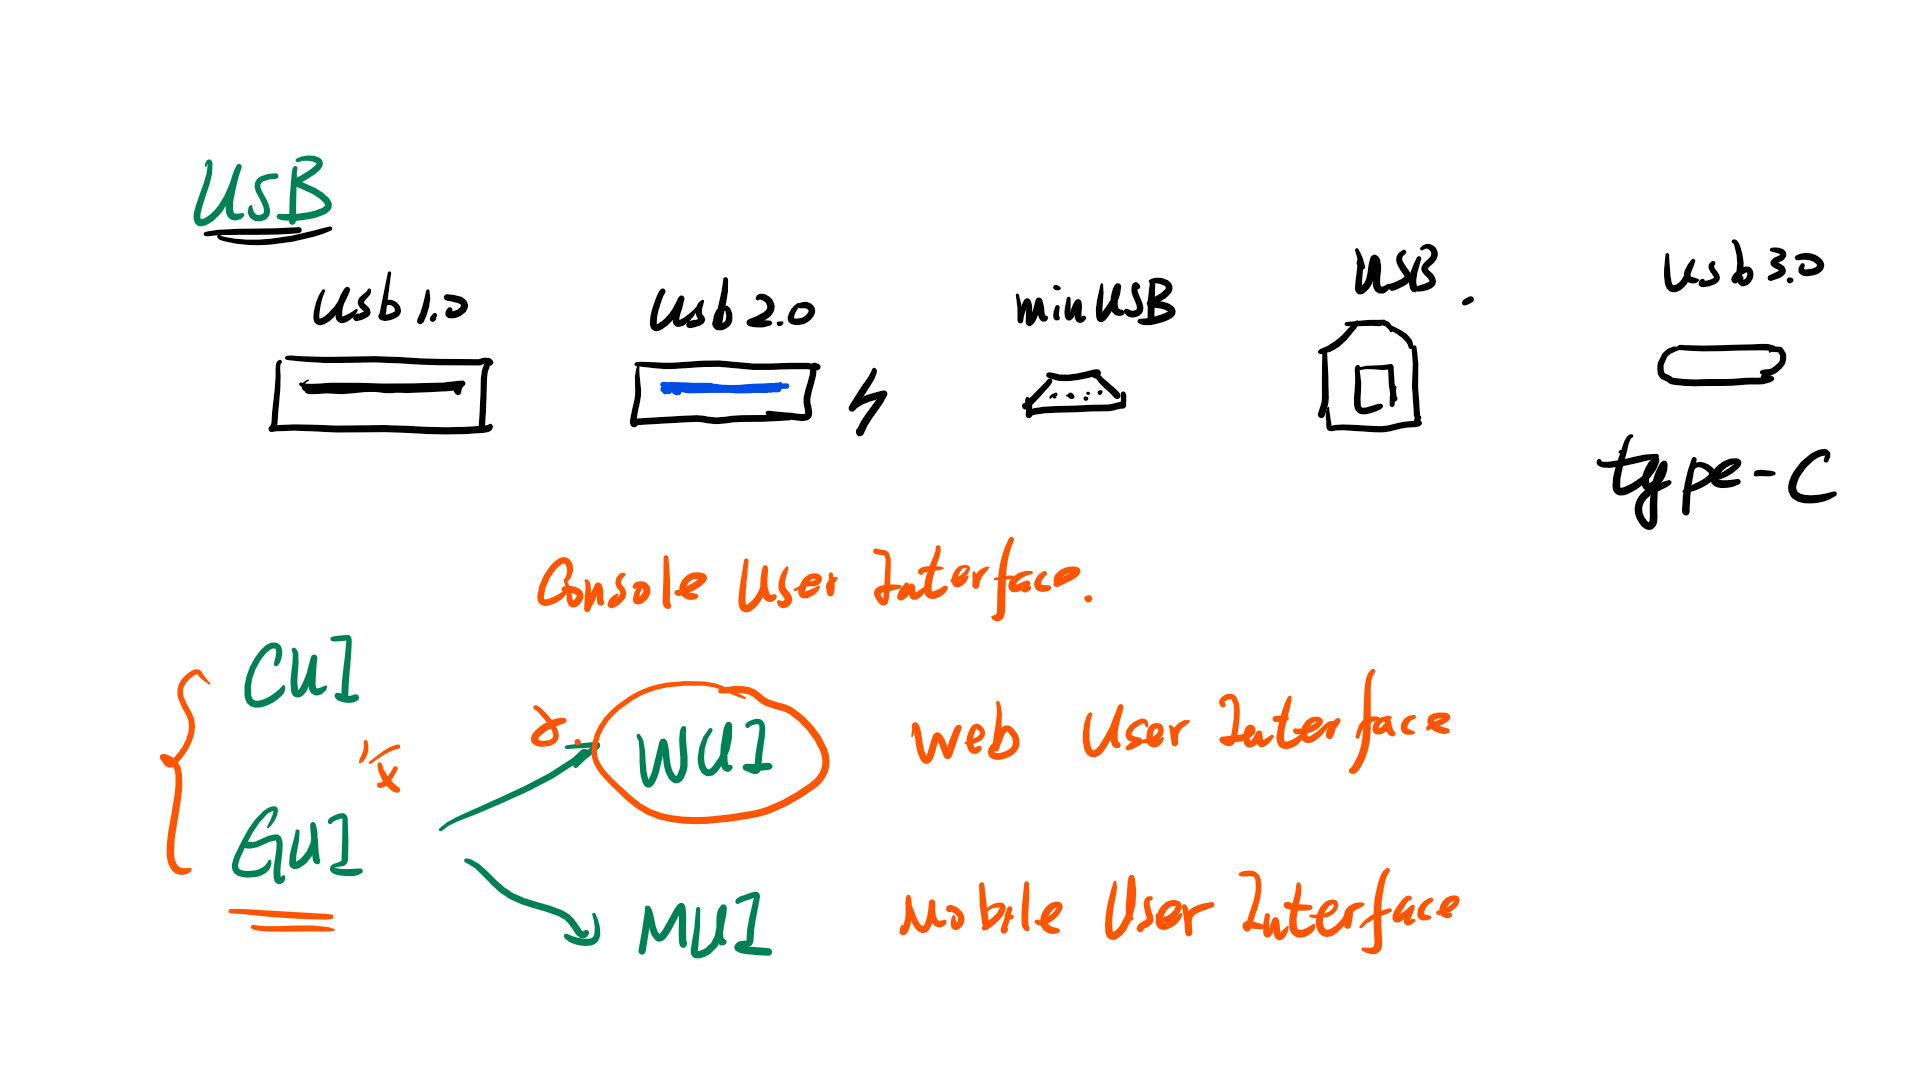 USB
usb 1.0
usb 2.0
minUSB
USB.
usb 3.0
type-C
Console User Interface.
CUI
WUI
Web User Interface
GUI
MUI
Mobile User Interface